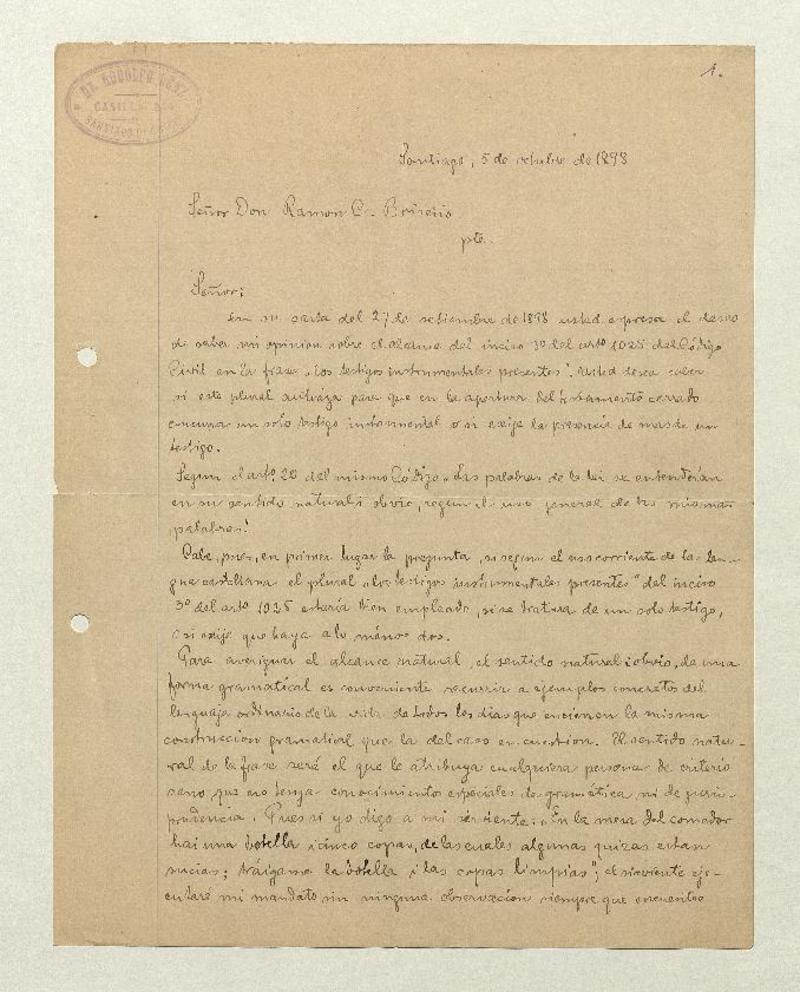 DR. RODOLFO LENZ
CASILLA
SANTIAGO
1.
Santiago, 5 de octubre de 1898
Señor Don Ramon C. Briseño
pte.
Señor:
En su carta del 27 de setiembre de 1898 usted expresa el deseo
de saber mi opinion sobre el alcance del inciso 3º del artº 1025 del Código
Civil en la frase "los testigos instrumentales presentes". Usted desea saber
si este plural autoriza para que en la apertura del testamento cerrado
concurra un solo testigo instrumental o si exije la presencia de mas de un
testigo.
Segun el artº 20 del mismo Código "Las palabras de la lei se entenderán
en su sentido natural i obvio, segun el uso jeneral de las mismas
palabras".
Cabe, pues, en primer lugar la pregunta, si segun el uso corriente de la len-
gua castellana el plural "los testigos instrumentales presentes" del inciso
3º del artº 1025 estaría bien empleado, si se tratara de un solo testigo,
o si exije que haya a lo ménos dos.
Para averiguar el alcance natural, el sentido natural i obvio, de una
forma gramatical es conveniente recurrir a ejemplos concretos del
lenguaje ordinario de la vida de todos los dias que encierren la misma
construccion gramatical que la del caso en cuestion. El sentido natu-
ral de la frase será el que le atribuya cualquiera persona de criterio
sano que no tenga conocimientos especiales de gramática ni de juris-
prudencia. Pues si yo digo a mi sirviente: "En la mesa del comedor
hai una botella i cinco copas, de las cuales algunas quizas estan
sucias; tráigame la botella i las copas limpias"; el sirviente eje-
cutará mi mandato sin ninguna observacion siempre que encuentre